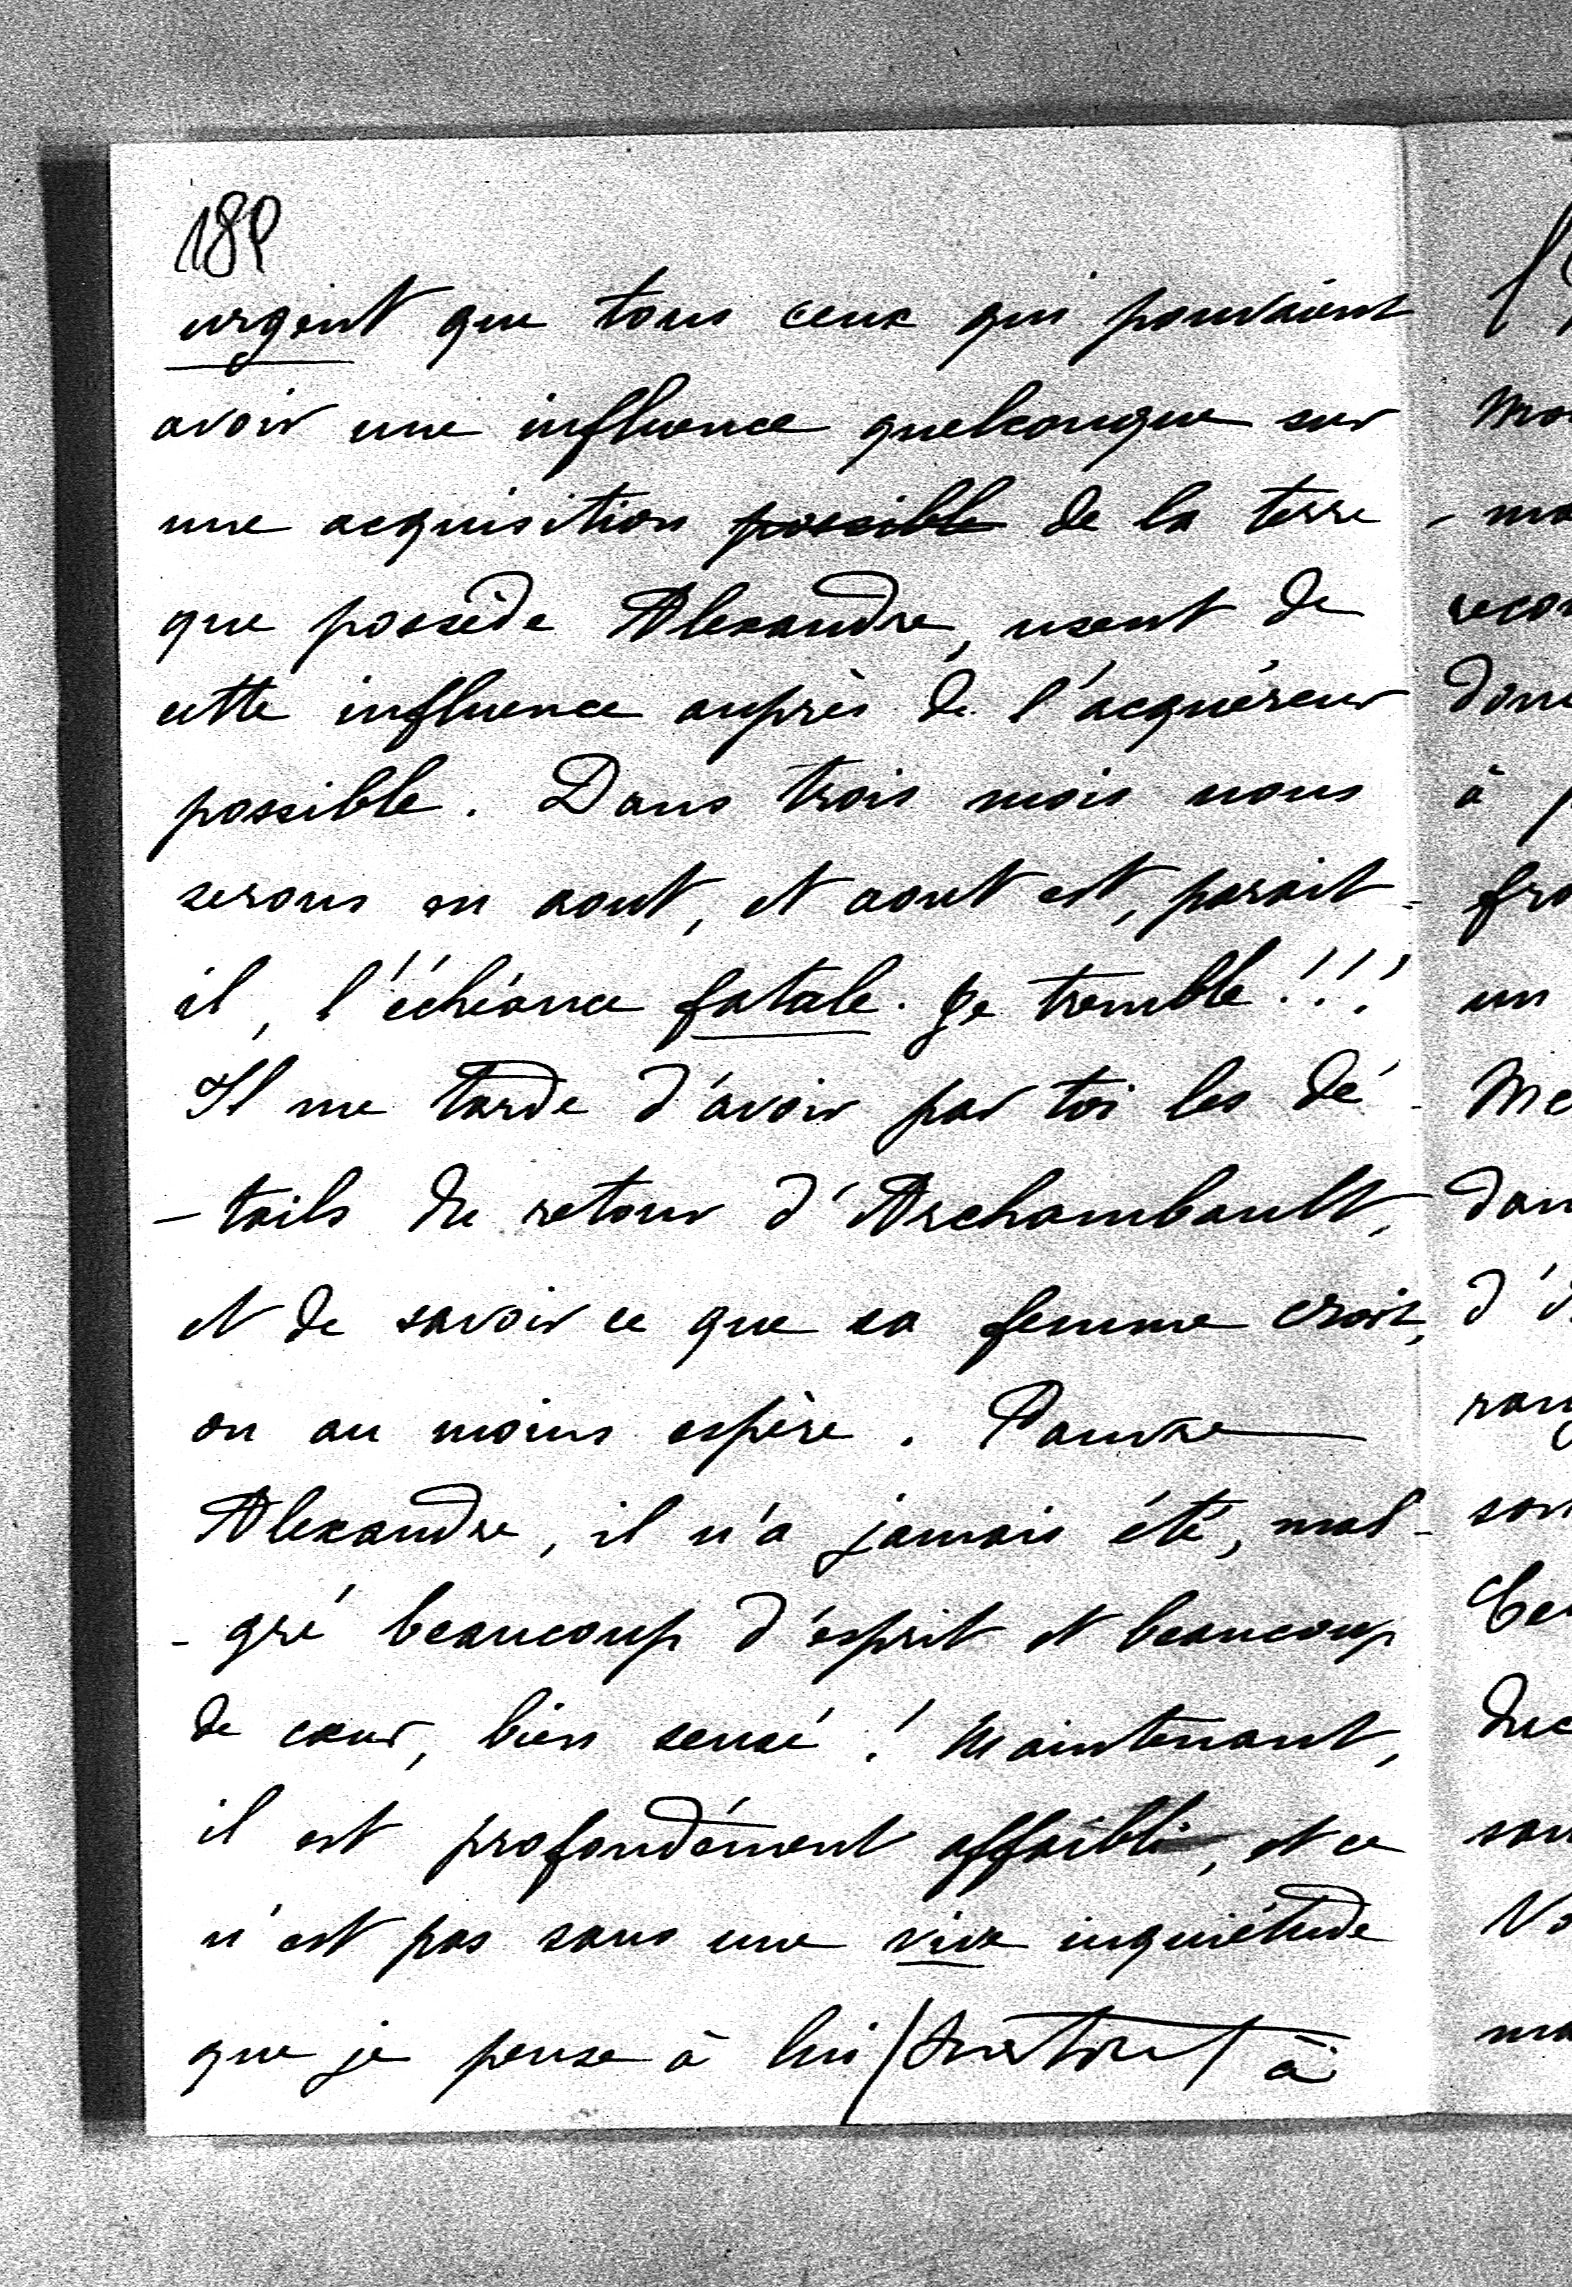 189
urgent que tous ceux qui pouvaient
avoir une influence quelconque sur
une acquisition possible de la terre
que possède Alexandre, usent de
cette influence auprès de l'acquéreur
possible. Dans trois mois nous
serons en aout, et aout est, parait-
il, l'échéance fatale. Je tremble!!!
Il me tarde d'avoir par toi les dé-
-tails du retour d'Archambault,
et de savoir ce que sa femme croit,
ou au moins espère. Pauvre
Alexandre, il n'a jamais été, mal-
-gré beaucoup d'esprit et beaucoup
de cœur, bien sensé! Maintenant,
il est profondément affaibli, et ce
n'est pas sans une vive inquiétude
que je pense à lui (surtout à